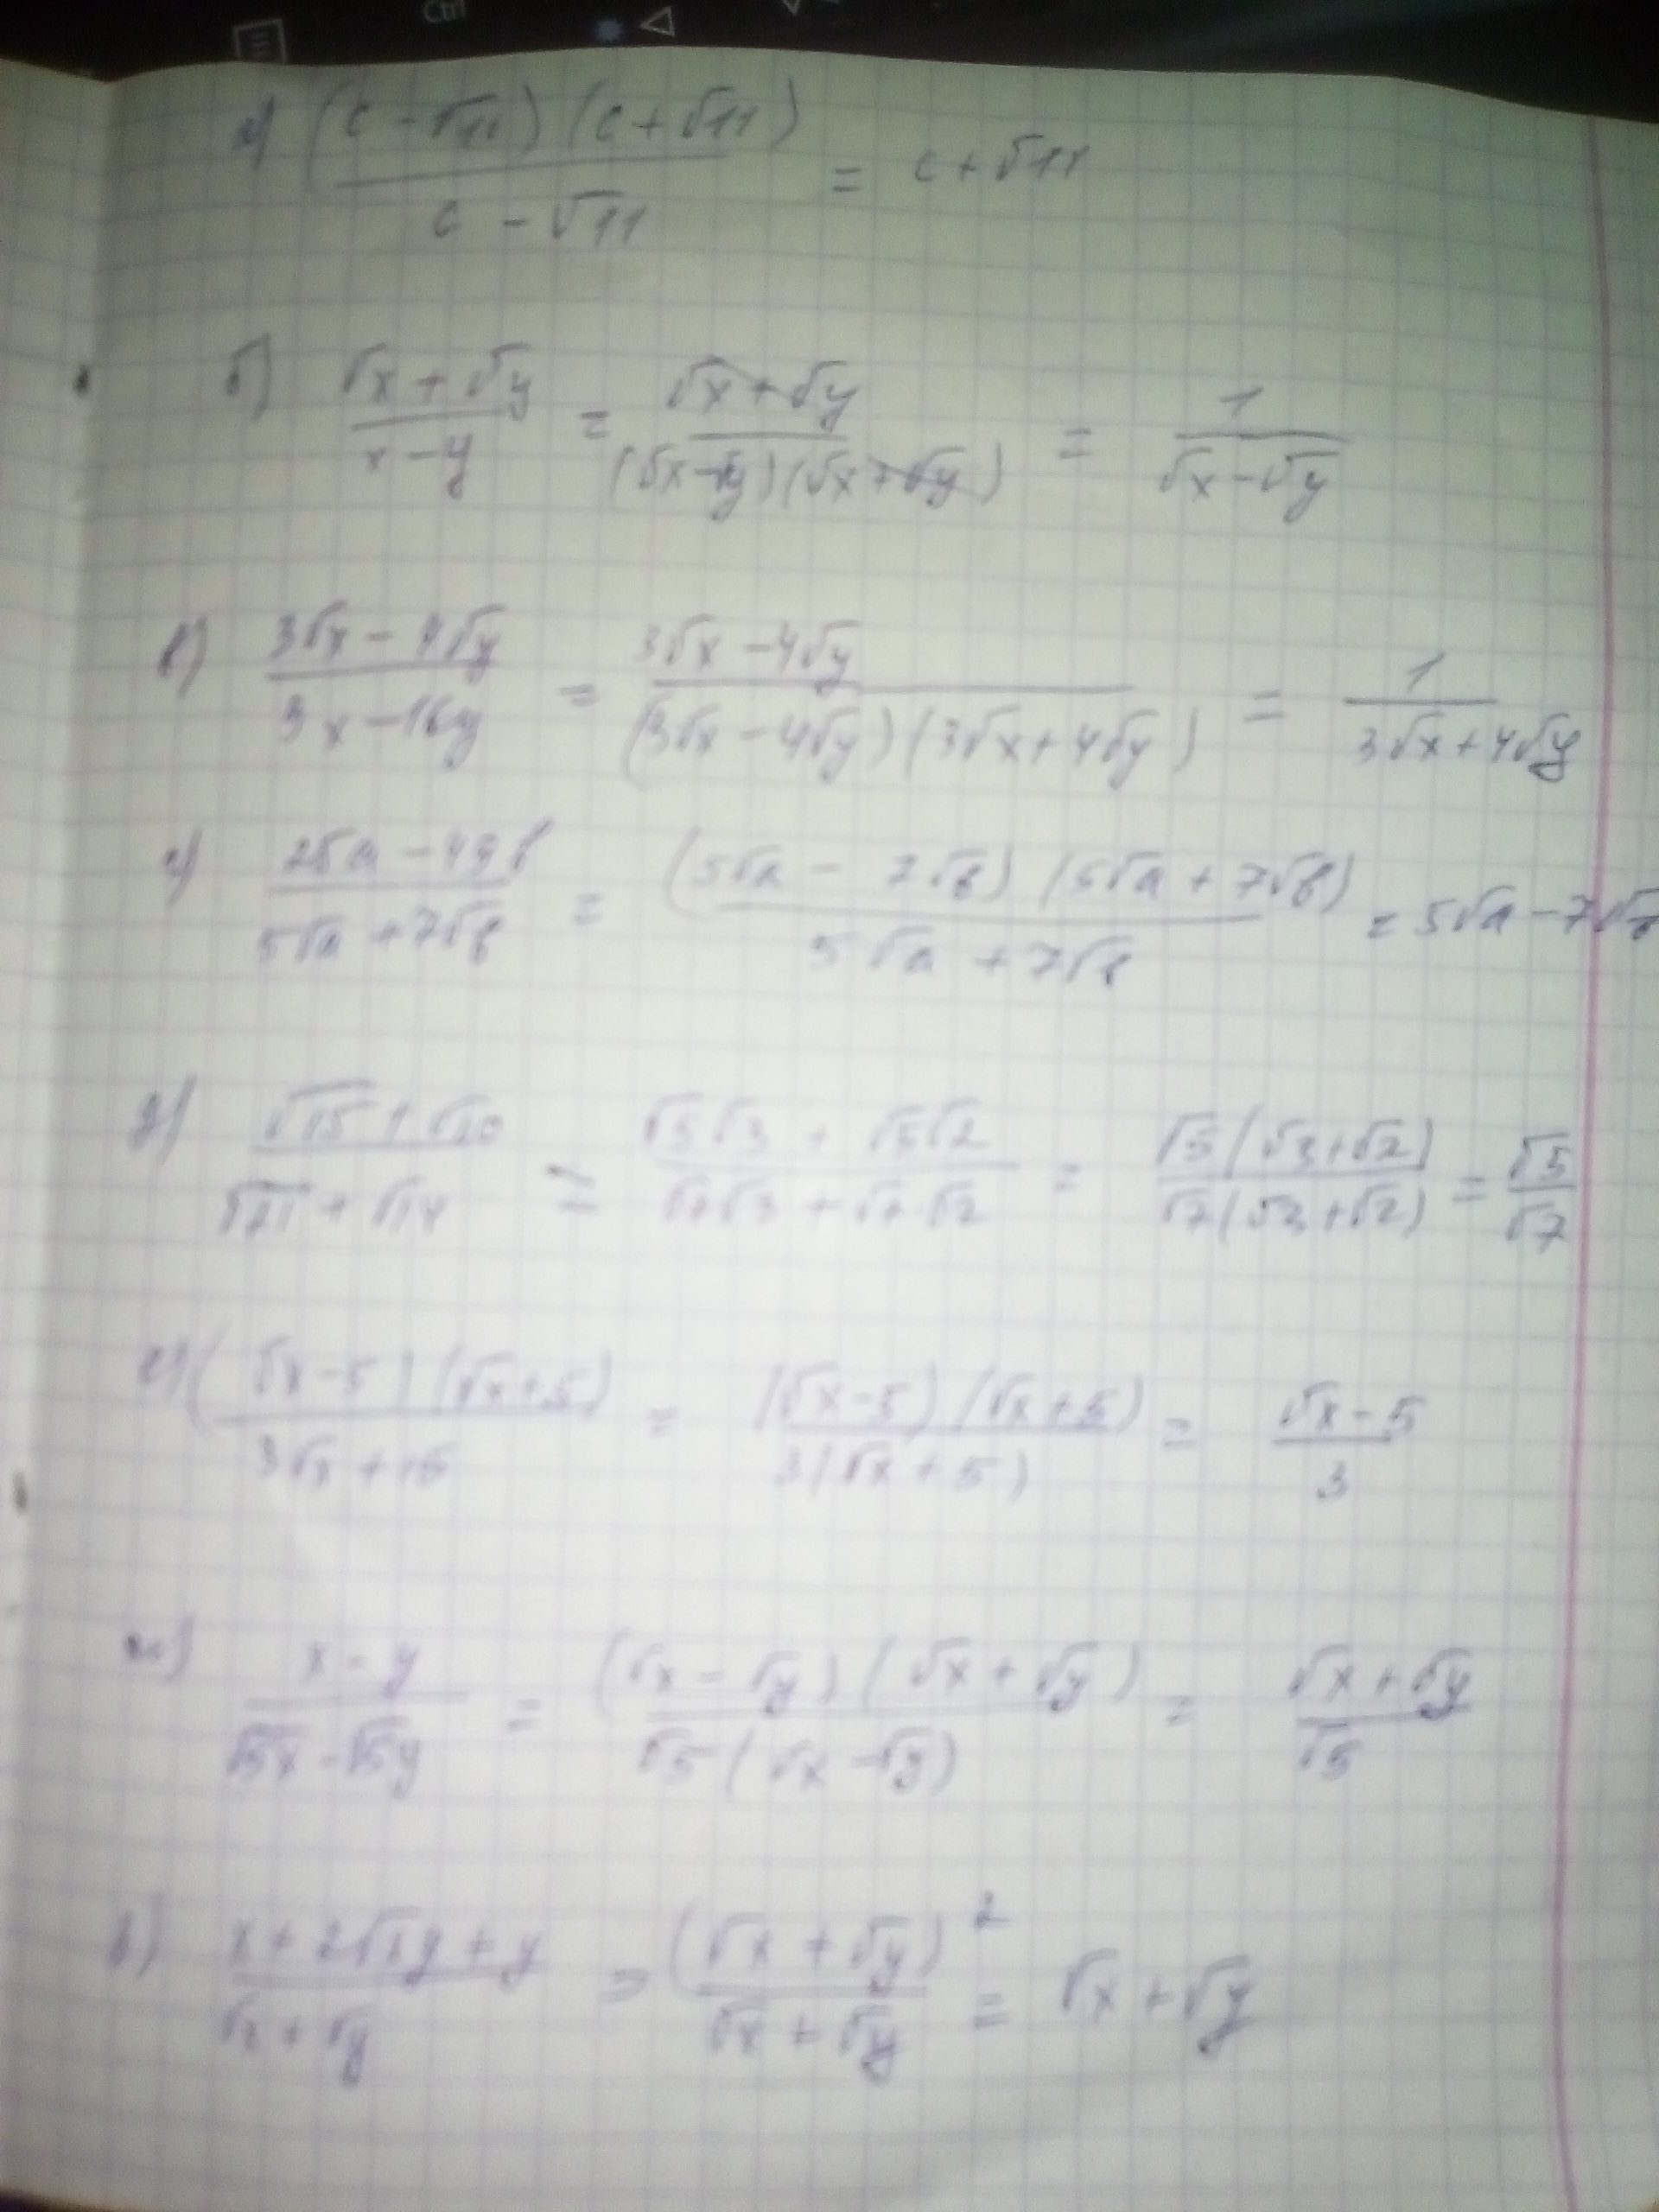 Ctrl
а) (c - √11)(c + √11) / (c - √11) = c + √11
б) (√x + √y) / (x - y) = (√x + √y) / ((√x - √y)(√x + √y)) = 1 / (√x - √y)
в) (3√x - 4√y) / (9x - 16y) = (3√x - 4√y) / ((3√x - 4√y)(3√x + 4√y)) = 1 / (3√x + 4√y)
г) (25a - 49b) / (5√a + 7√b) = (5√a - 7√b)(5√a + 7√b) / (5√a + 7√b) = 5√a - 7√b
д) (√15 + √10) / (√21 + √14) = (√5√3 + √5√2) / (√7√3 + √7√2) = √5(√3 + √2) / (√7(√3 + √2)) = √5 / √7
е) (√x - 5)(√x + 5) / (3√x + 15) = (√x - 5)(√x + 5) / (3(√x + 5)) = (√x - 5) / 3
ж) (x - y) / (√5x - √5y) = (√x - √y)(√x + √y) / (√5(√x - √y)) = (√x + √y) / √5
з) (x + 2√xy + y) / (√x + √y) = (√x + √y)² / (√x + √y) = √x + √y